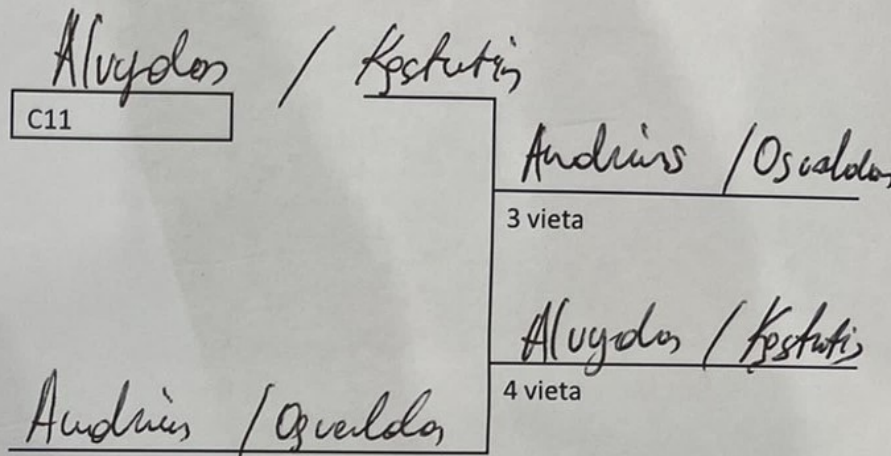 Alvydas / Kęstutis
C11
Andrius / Osvaldas
3 vieta
Alvydas / Kęstutis
4 vieta
Andrius / Osvaldas